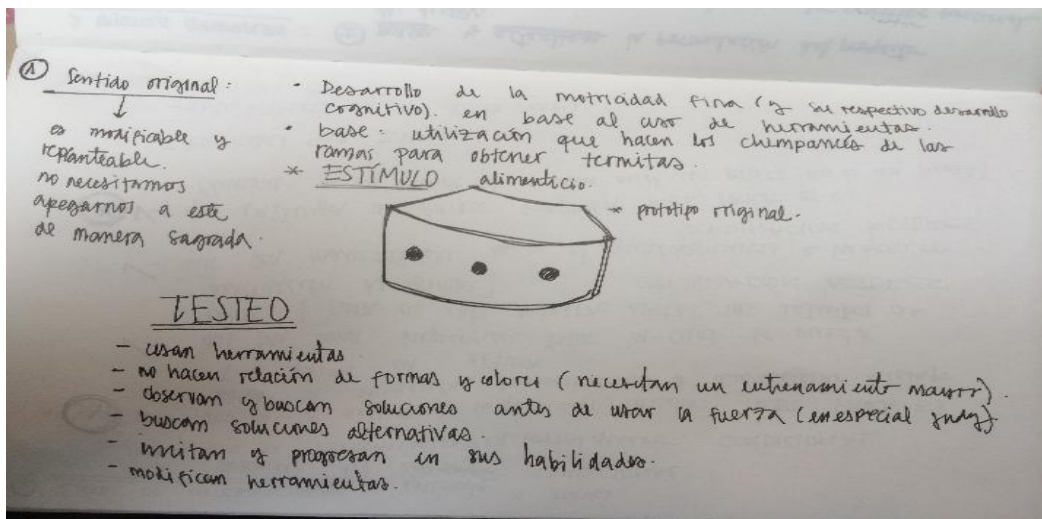 ① Sentido original:
↓
es modificable y
replanteable.
no necesitamos
apegarnos a este
de manera sagrada.
• Desarrollo de la motricidad fina (y su respectivo desarrollo
cognitivo). en base al uso de herramientas.
• base: utilización que hacen los chimpancés de las
ramas para obtener termitas.
* ESTÍMULO alimenticio.
* prototipo original.
TESTEO
- usan herramientas
- no hacen relación de formas y colores (necesitan un entrenamiento mayor).
- observan y buscan soluciones antes de usar la fuerza (en especial Judy).
- buscan soluciones alternativas.
- imitan y progresan en sus habilidades.
- modifican herramientas.